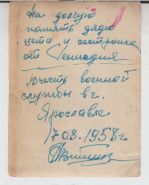 На долгую
память дяде
и сестрёнке
от Геннадия
В честь военной
службы в г.
Ярославле
17.08.1958 г.